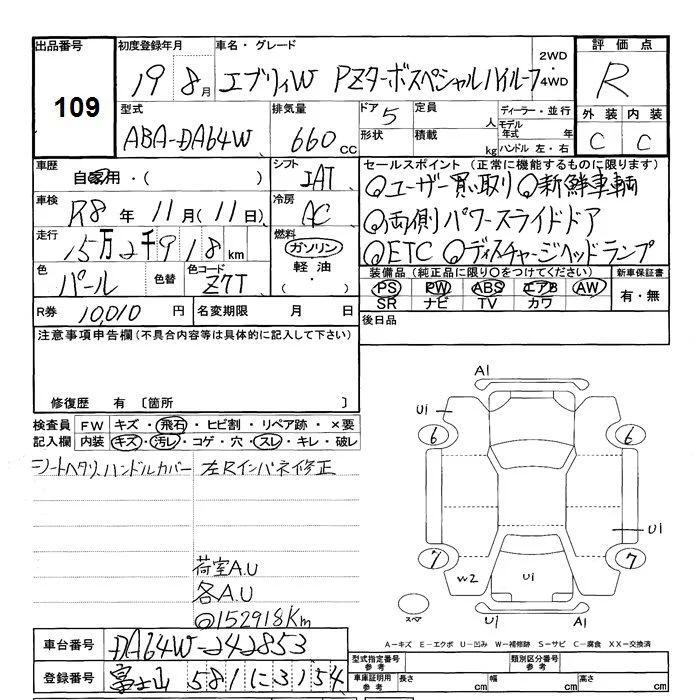 出品番号 109
初度登録年月 19 8月
車名・グレード エブリィW PZターボスペシャルハイルーフ
2WD・4WD
評価点 R
型式 ABA-DA64W
排気量 660 CC
ドア 5 定員 人
形状 積載 kg
ディーラー・並行
モデル年式 年
ハンドル 左・右
外装 内装
C C
車歴 自家用・( )
シフト IAT
車検 R8年 11月(11日)
冷房 AC
走行 15万2千918km
燃料 ガソリン・軽油・( )
色 パール 色替 色コード Z7T
R券 10,010 円 名変期限 月 日
セールスポイント(正常に機能するものに限ります)
◎ユーザー買い取り ◎新鮮車輌
◎両側パワースライドドア
◎ETC ◎ディスチャージヘッドランプ
装備品(純正品に限り○をつけてください) 新車保証書
PS PW ABS エアB AW 有・無
SR ナビ TV カワ
後日品
注意事項申告欄(不具合内容等は具体的に記入して下さい)
修復歴 有〔箇所 〕
検査員記入欄
FW キズ・飛石・ヒビ割・リペア跡・×要
内装 キズ・汚レ・コゲ・穴・スレ・キレ・破レ
シートヘタリ、ハンドルカバー 左Rインパネ修正
荷室A.U
各A.U
◎152918Km
A1
U1
6 6
U1
7 7
W2 U1
スペア U1 A1
A-キズ E-エクボ U-凹み W-補修跡 S-サビ C-腐食 XX-交換済
車台番号 DA64W-242853
登録番号 富士山 581 に 3154
型式指定番号 参考 類別区分番号 参考
車庫証明用 参考 長さ cm 幅 cm 高さ cm